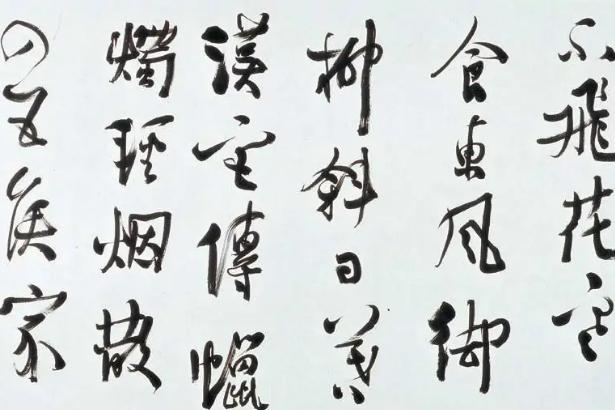 不飛花寒
食東風御
柳斜日暮
漢宮傳蠟
燭輕烟散
入五侯家